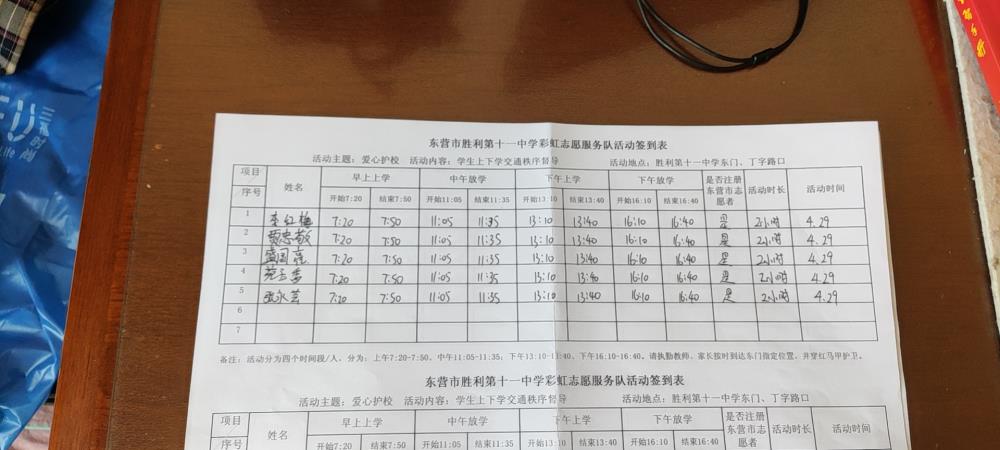 时尚
Life
东营市胜利第十一中学彩虹志愿服务队活动签到表
活动主题：爱心护校 活动内容：学生上下学交通秩序督导 活动地点：胜利第十一中学东门、丁字路口
项目 序号 姓名 早上上学 中午放学 下午上学 下午放学 是否注册东营市志愿者 活动时长 活动时间
开始7:20 结束7:50 开始11:05 结束11:35 开始13:10 结束13:40 开始16:10 结束16:40
1 李红梅 7:20 7:50 11:05 11:35 13:10 13:40 16:10 16:40 是 2小时 4.29
2 贾忠敏 7:20 7:50 11:05 11:35 13:10 13:40 16:10 16:40 是 2小时 4.29
3 7:20 7:50 11:05 11:35 13:10 13:40 16:10 16:40 是 2小时 4.29
4 7:20 7:50 11:05 11:35 13:10 13:40 16:10 16:40 是 2小时 4.29
5 7:20 7:50 11:05 11:35 13:10 13:40 16:10 16:40 是 2小时 4.29
6
7
备注：活动分为四个时间段/人，分为：上午7:20-7:50、中午11:05-11:35；下午13:10-13:40、下午16:10-16:40。请执勤教师、家长按时到达东门指定位置，并穿红马甲护卫。
东营市胜利第十一中学彩虹志愿服务队活动签到表
活动主题：爱心护校 活动内容：学生上下学交通秩序督导 活动地点：胜利第十一中学东门、丁字路口
项目 序号 姓名 早上上学 中午放学 下午上学 下午放学 是否注册东营市志愿者 活动时长 活动时间
开始7:20 结束7:50 开始11:05 结束11:35 开始13:10 结束13:40 开始16:10 结束16:40